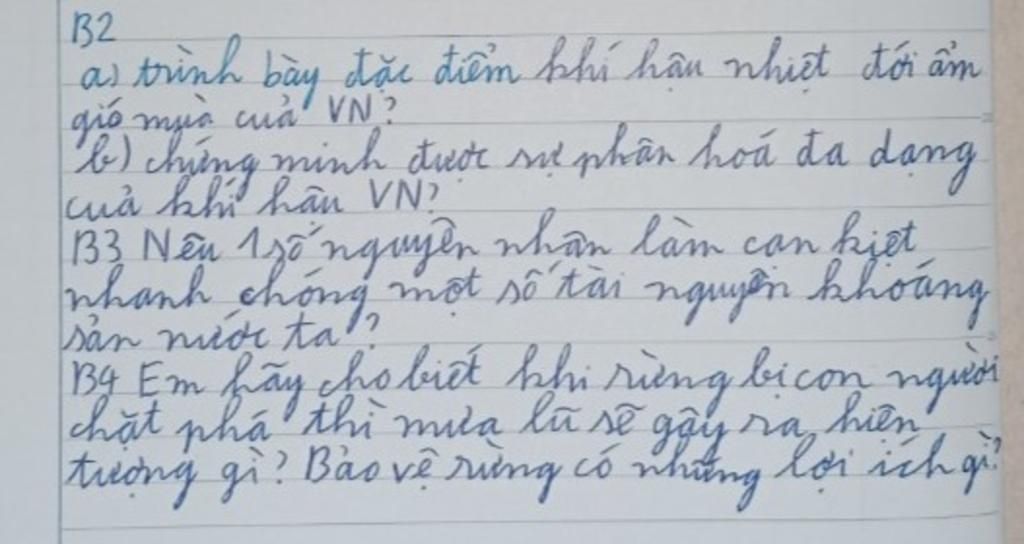 B2
a) trình bày đặc điểm khí hậu nhiệt đới ẩm
gió mùa của VN?
b) chứng minh được sự phân hoá đa dạng
của khí hậu VN?
B3 Nêu 1 số nguyên nhân làm cạn kiệt
nhanh chóng một số tài nguyên khoáng
sản nước ta?
B4 Em hãy cho biết khi rừng bị con người
chặt phá thì mưa lũ sẽ gây ra hiện
tượng gì? Bảo vệ rừng có những lợi ích gì?